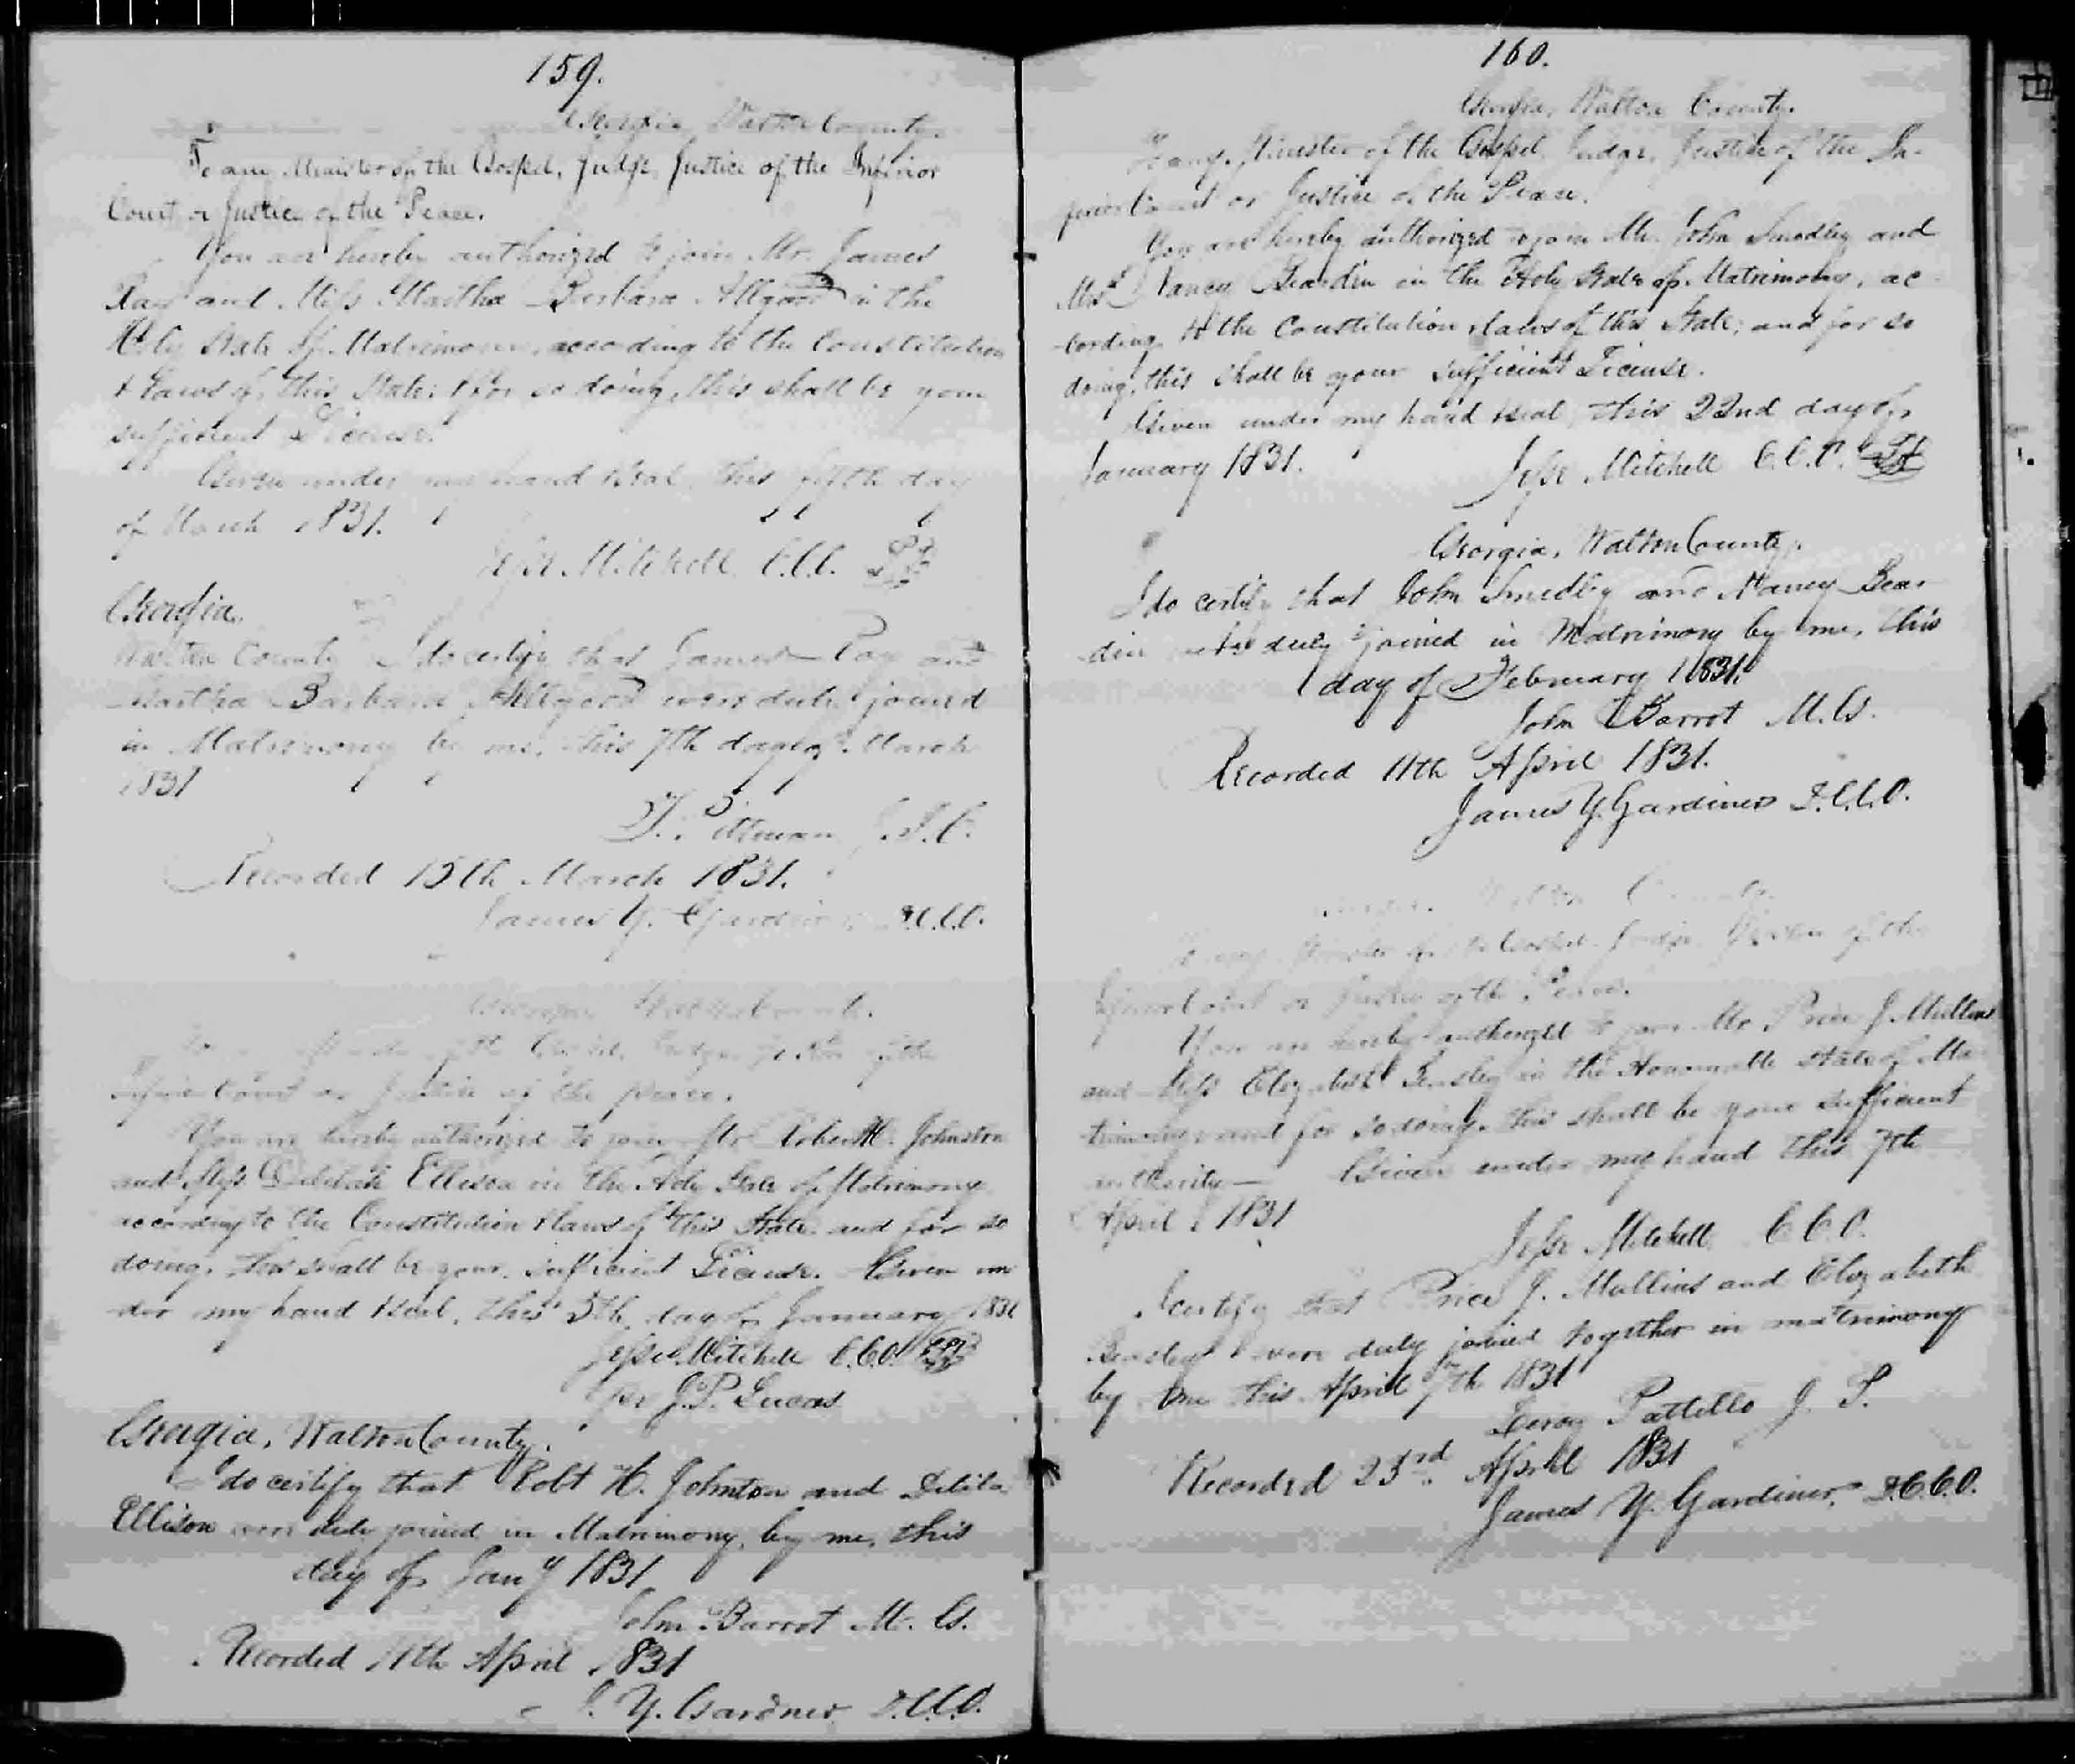 159.
Georgia, Walton County.
To any Minister of the Gospel, Judge, Justice of the Inferior
Court or Justice of the Peace.
You are hereby authorized to join Mr. James
Ray and Miss Martha Barbara Allgood in the
Holy State of Matrimony, according to the Constitution
& Laws of this State; & for so doing, this shall be your
sufficient License.
Given under my hand & seal, this fifth day
of March 1831.
Jesse Mitchell C.C.O.
Georgia,
Walton County I do certify that James Ray and
Martha Barbara Allgood were duly joined
in Matrimony by me, this 7th day of March
1831
Pittman
Recorded 15th March 1831.
James Y. Gardiner D.C.C.O.
Georgia Walton County.
To any Minister of the Gospel, Judge, Justice of the
Inferior Court or Justice of the peace.
You are hereby authorized to join Mr. Robert H. Johnston
and Miss Delilah Ellison in the Holy State of Matrimony
according to the Constitution & laws of this State and for so
doing, this shall be your sufficient License. Given un
der my hand & seal, this 5th day of January 1831
Jesse Mitchell C.C.O.
per J.P. Lucas
Georgia, Walton County.
I do certify that Robt H. Johnton and Delila
Ellison were duly joined in Matrimony, by me, this
day of Jany 1831
John Barrot M. G.
Recorded 11th April 1831
J. Y. Gardner D.C.C.O.
160.
Georgia, Walton County.
To any Minister of the Gospel, Judge, Justice of the In-
ferior Court or Justice of the Peace.
You are hereby authorized to join Mr. John Smedley and
Mrs Nancy Beardin in the Holy State of Matrimony, ac-
cording to the Constitution & laws of this State; and for so
doing, this shall be your sufficient License.
Given under my hand & seal, this 22nd day of
January 1831.
Jesse Mitchell C.C.O.
Georgia, Walton County.
I do certify that John Smedley and Nancy Bear
din were duly joined in Matrimony by me, this
day of February 1831.
John Barrot M.G.
Recorded 11th April 1831.
James Y. Gardiner D.C.C.O.
Walton County.
To any Minister of the Gospel Judge Justice of the
Inferior Court or Justice of the Peace.
You are hereby authorized to join Mr. Price J. Mullins
and Miss Elizabeth Beasley in the Honourable State of Ma
trimony and for so doing, this shall be your sufficient
authority— Given under my hand this 7th
April 1831
Jesse Mitchell C.C.O.
I certify that Price J. Mullins and Elizabeth
Beasley were duly joined together in matrimony
by me this April 7th 1831
Leroy Pattillo J. P.
Recorded 23rd April 1831
James Y. Gardiner, D.C.C.O.